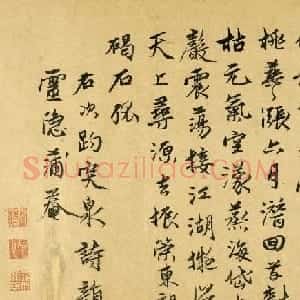 桃華漲六月潛回首
枯元氣室濛蒸海岱
巖震蕩接江湖擬從
天上尋源去振策東
碣石孤
右次趵突泉詩韻
靈隱蒲菴
Shufaziliao.COM